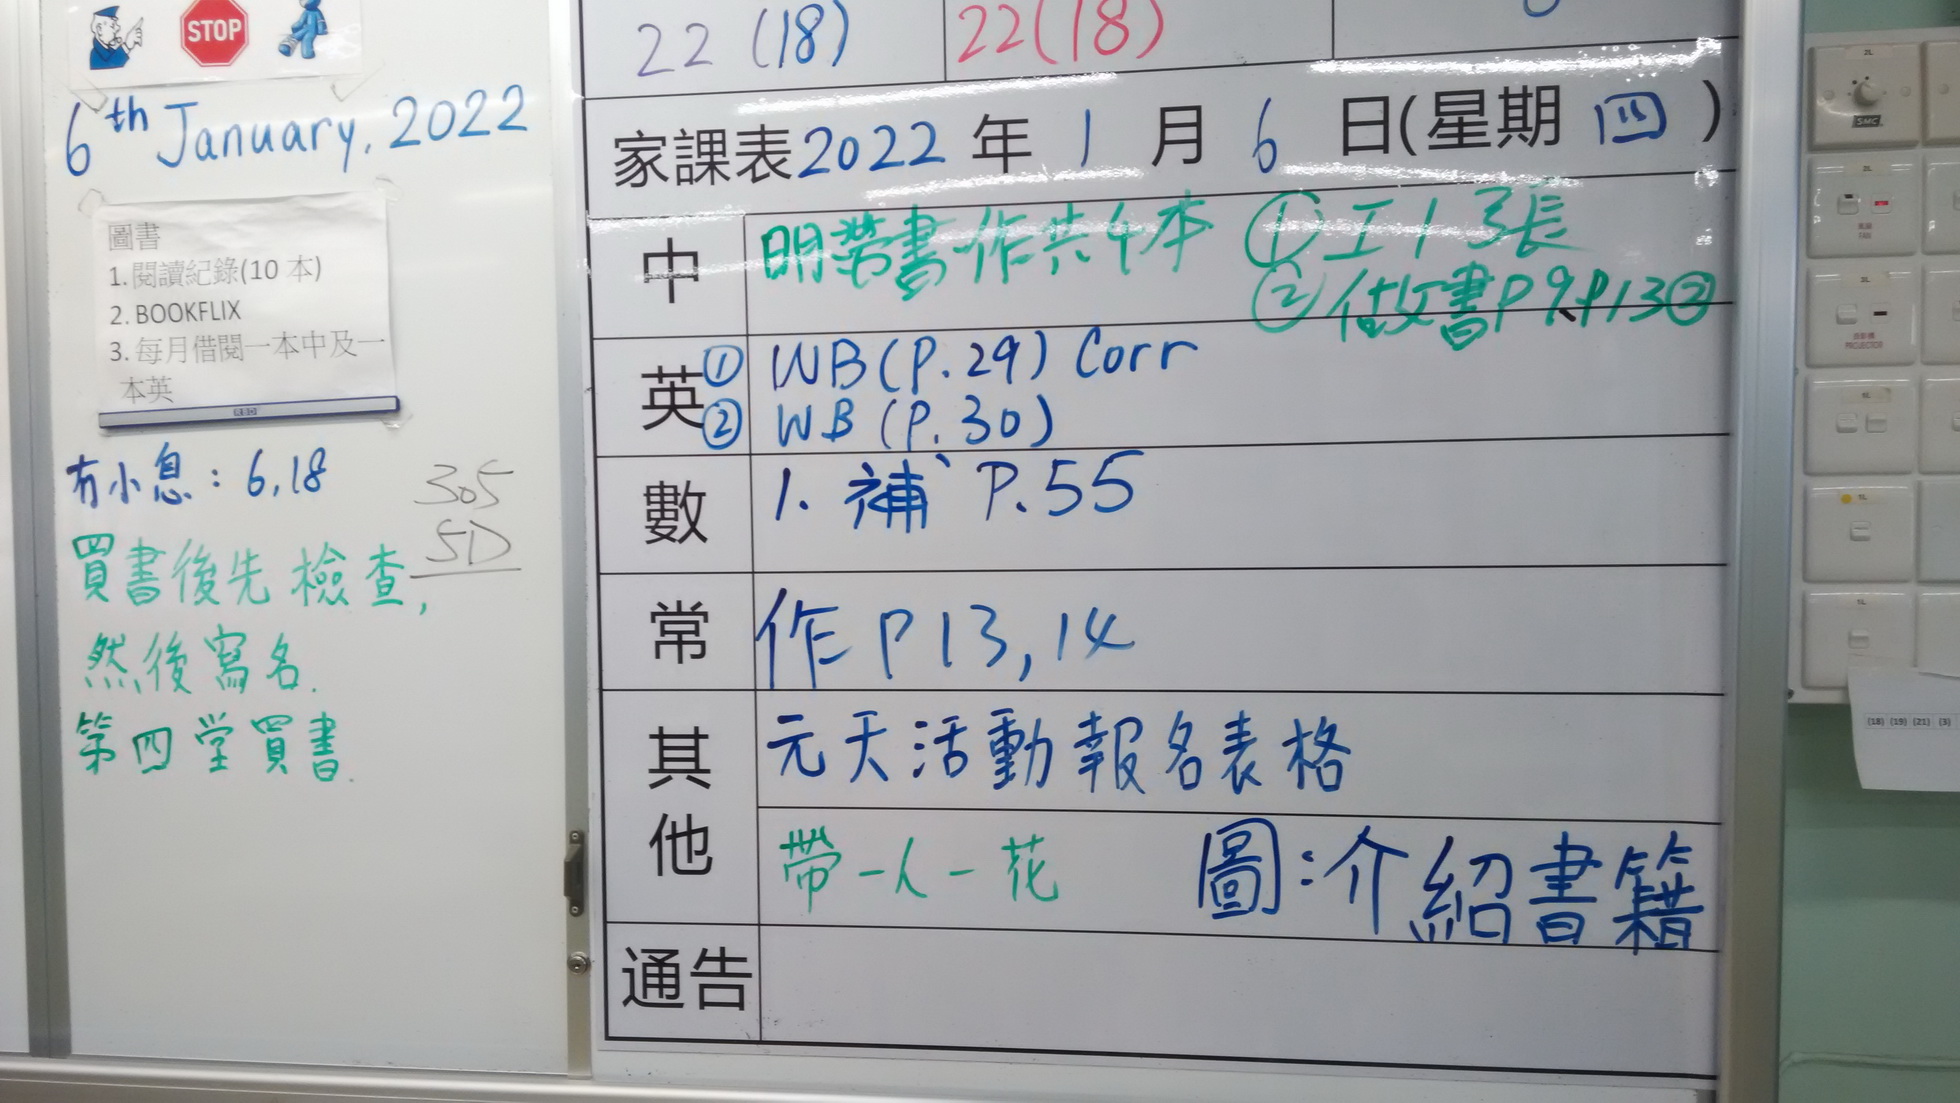 STOP
6th January, 2022
圖書
1. 閱讀紀錄(10 本)
2. BOOKFLIX
3. 每月借閱一本中及一
本英
冇小息：6,18
305
50
買書後先檢查,
然後寫名.
第四堂買書.
22 (18)
22(18)
家課表2022年1月6日(星期四)
中
明勞書作共4本 ① 工1 3張
② 做文書P9,P13②
英
① WB(P.29) Corr
② WB (P.30)
數
1. 補、P.55
常
作 P13,14
其他
元天活動報名表格
帶一人一花
圖：介紹書籍
通告
(18) (19) (21) (3)